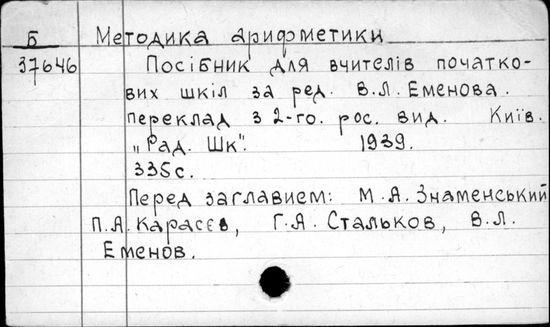 Б Методика арифметики
37646 Посібник для вчителів початко-
вих шкіл за ред. В.Л. Еменова.
Переклад з 2-го. рос. вид. Київ.
„Рад. Шк". 1939.
335с.
Перед заглавием: М.Я. Знаменський
П.А. Карасєв, Г.Я. Стальков, В.Л.
Еменов.